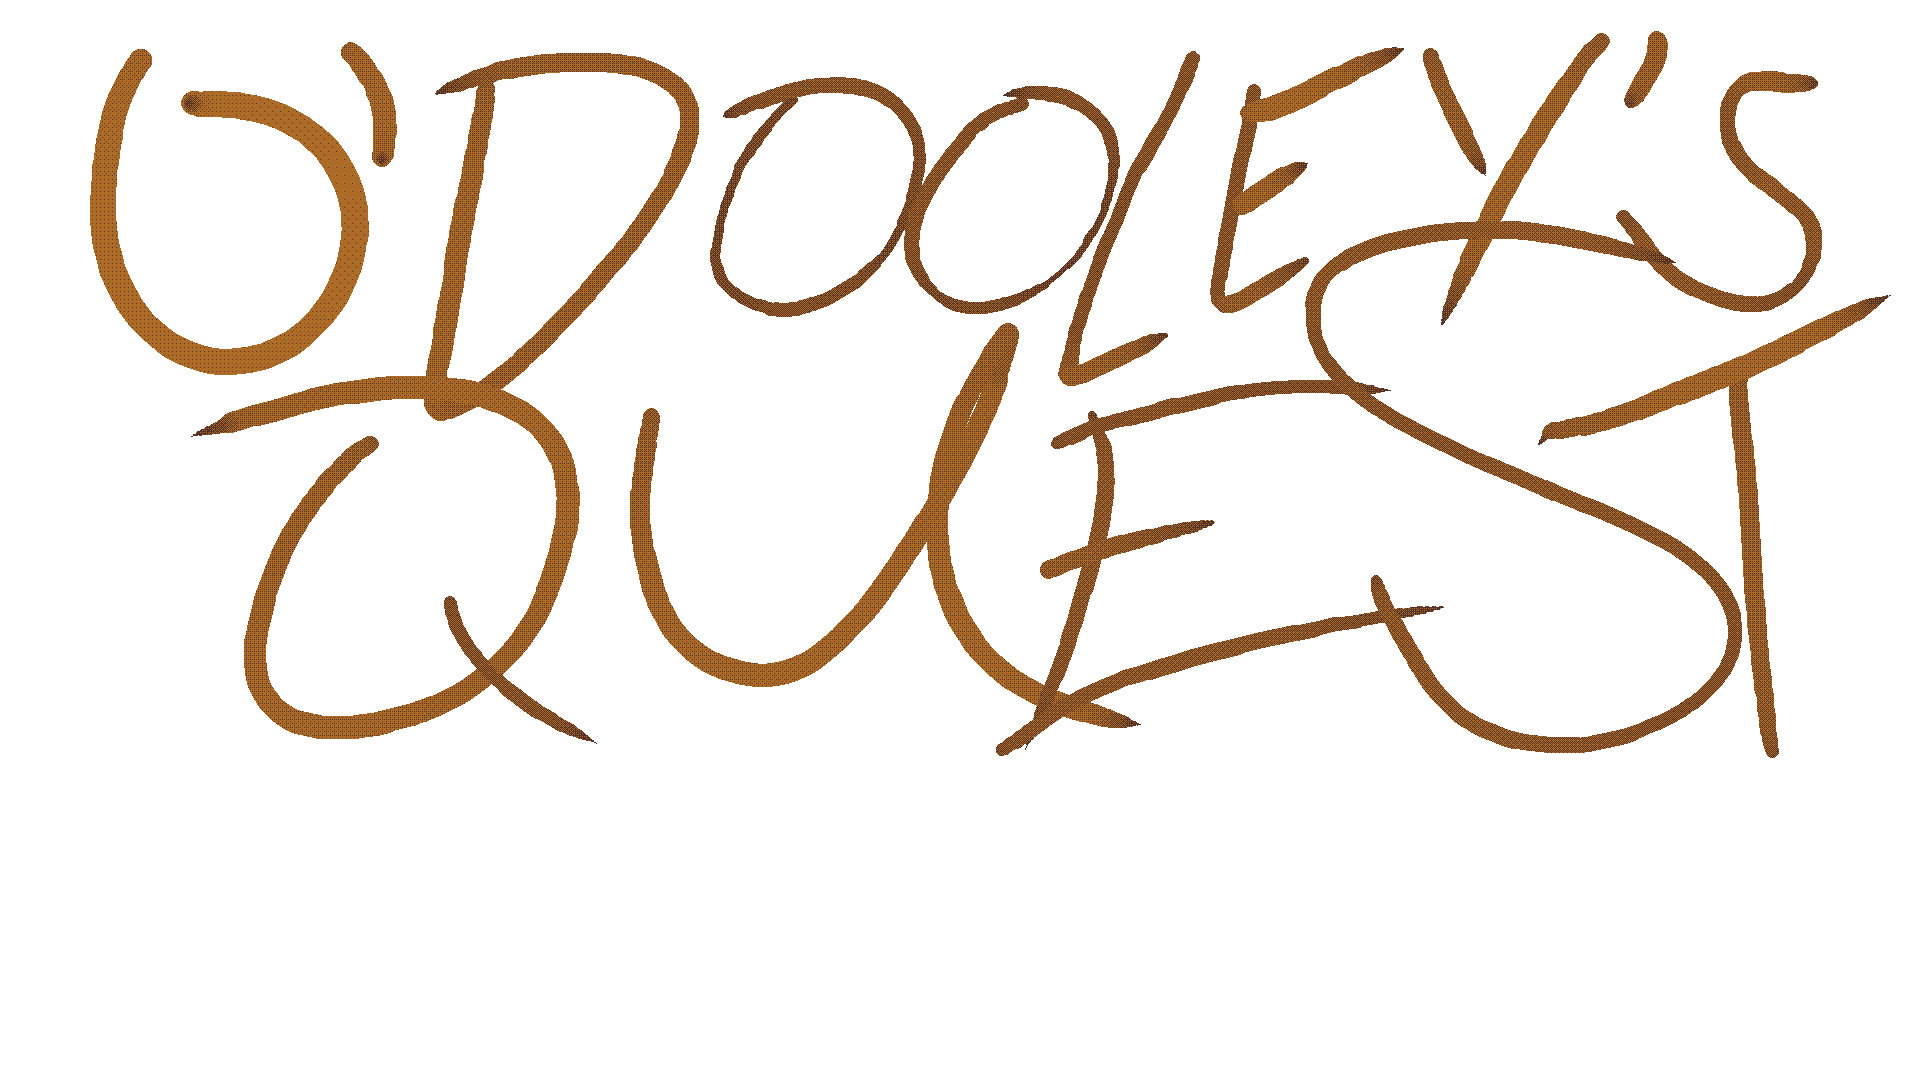 O'DOOLEY'S
QUEST